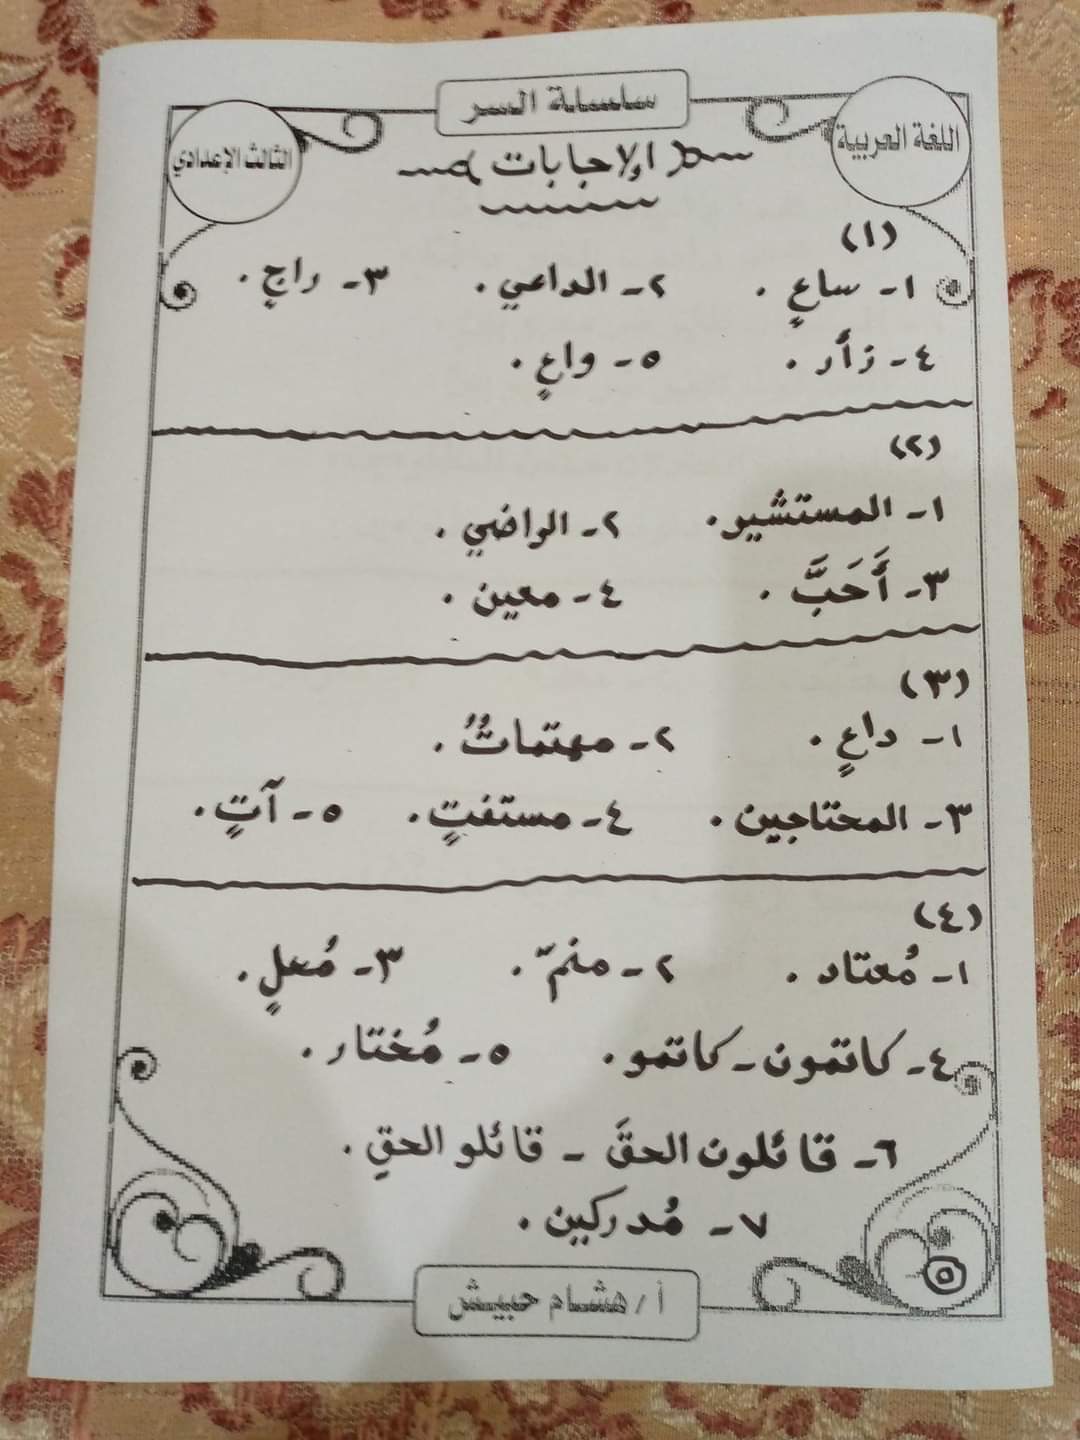 سلسلة السر
اللغة العربية
الثالث الإعدادي
الإجابات
(١)
١- ساعٍ . ٢- الداعي . ٣- راجٍ .
٤- زأر . ٥- واعٍ .
(٢)
١- المستشير . ٢- الراضي .
٣- أَحَبَّ . ٤- معين .
(٣)
١- داعٍ . ٢- مهتماتٌ .
٣- المحتاجين . ٤- مستفتٍ . ٥- آتٍ .
(٤)
١- مُعتاد . ٢- منمّ . ٣- مُعلٍ .
٤- كاتمون - كاتمو . ٥- مُختار .
٦- قائلون الحقَ - قائلو الحقِ .
٧- مُدركين .
٥
أ/ هشام حبيش